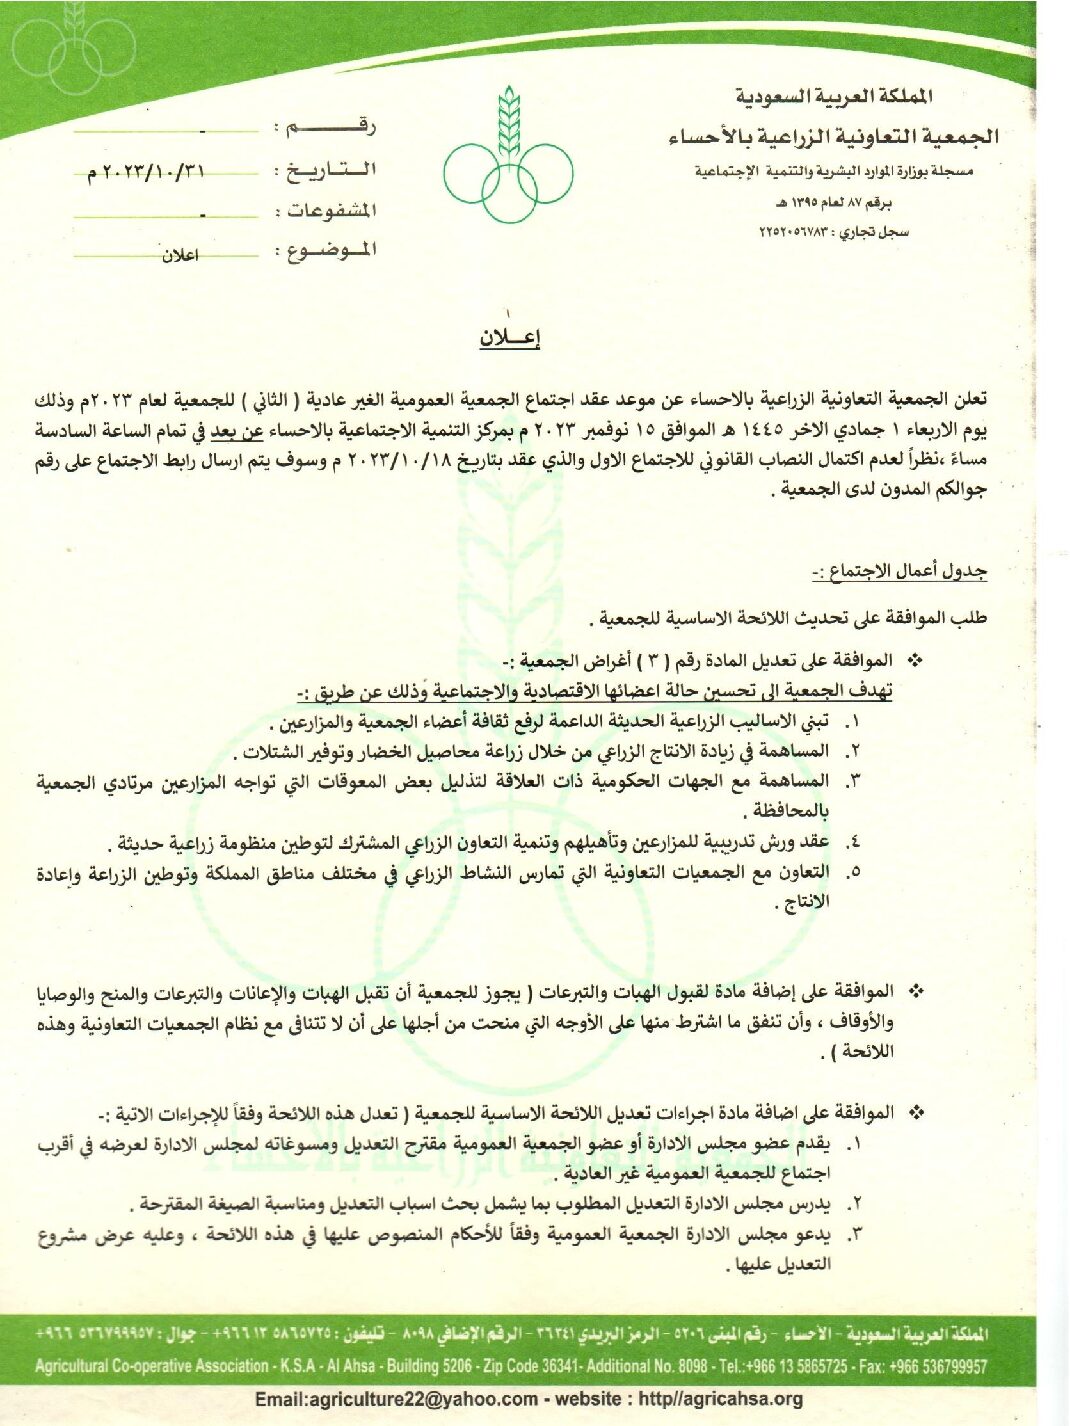 المملكة العربية السعودية
الجمعية التعاونية الزراعية بالأحساء
مسجلة بوزارة الموارد البشرية والتنمية الإجتماعية
برقم ٨٧ لعام ١٣٩٥ هـ
سجل تجاري : ٢٢٥٢٠٥٦٧٨٣
رقـــــــم : -
الـتـاريـخ : ٢٠٢٣/١٠/٣١ م
المشفوعات : -
المـوضـوع : اعلان
إعـــلان
تعلن الجمعية التعاونية الزراعية بالاحساء عن موعد عقد اجتماع الجمعية العمومية الغير عادية ( الثاني ) للجمعية لعام ٢٠٢٣م وذلك
يوم الاربعاء ١ جمادي الاخر ١٤٤٥ هـ الموافق ١٥ نوفمبر ٢٠٢٣ م بمركز التنمية الاجتماعية بالاحساء عن بعد في تمام الساعة السادسة
مساءً ،نظراً لعدم اكتمال النصاب القانوني للاجتماع الاول والذي عقد بتاريخ ٢٠٢٣/١٠/١٨ م وسوف يتم ارسال رابط الاجتماع على رقم
جوالكم المدون لدى الجمعية .
جدول أعمال الاجتماع :-
طلب الموافقة على تحديث اللائحة الاساسية للجمعية .
❖ الموافقة على تعديل المادة رقم ( ٣ ) أغراض الجمعية :-
تهدف الجمعية الى تحسين حالة اعضائها الاقتصادية والاجتماعية وذلك عن طريق :-
١. تبني الاساليب الزراعية الحديثة الداعمة لرفع ثقافة أعضاء الجمعية والمزارعين .
٢. المساهمة في زيادة الانتاج الزراعي من خلال زراعة محاصيل الخضار وتوفير الشتلات .
٣. المساهمة مع الجهات الحكومية ذات العلاقة لتذليل بعض المعوقات التي تواجه المزارعين مرتادي الجمعية
بالمحافظة .
٤. عقد ورش تدريبية للمزارعين وتأهيلهم وتنمية التعاون الزراعي المشترك لتوطين منظومة زراعية حديثة .
٥. التعاون مع الجمعيات التعاونية التي تمارس النشاط الزراعي في مختلف مناطق المملكة وتوطين الزراعة وإعادة
الانتاج .
❖ الموافقة على إضافة مادة لقبول الهبات والتبرعات ( يجوز للجمعية أن تقبل الهبات والإعانات والتبرعات والمنح والوصايا
والأوقاف ، وأن تنفق ما اشترط منها على الأوجه التي منحت من أجلها على أن لا تتنافى مع نظام الجمعيات التعاونية وهذه
اللائحة ) .
❖ الموافقة على اضافة مادة اجراءات تعديل اللائحة الاساسية للجمعية ( تعدل هذه اللائحة وفقاً للإجراءات الاتية :-
١. يقدم عضو مجلس الادارة أو عضو الجمعية العمومية مقترح التعديل ومسوغاته لمجلس الادارة لعرضه في أقرب
اجتماع للجمعية العمومية غير العادية .
٢. يدرس مجلس الادارة التعديل المطلوب بما يشمل بحث اسباب التعديل ومناسبة الصيغة المقترحة .
٣. يدعو مجلس الادارة الجمعية العمومية وفقاً للأحكام المنصوص عليها في هذه اللائحة ، وعليه عرض مشروع
التعديل عليها .
المملكة العربية السعودية - الأحساء - رقم المبنى ٥٢٠٦ - الرمز البريدي ٣٦٣٤١ - الرقم الإضافي ٨٠٩٨ - تليفون : ٥٨٦٥٧٢٥ ١٣ ٩٦٦+ - جوال : ٥٣٦٧٩٩٩٥٧ ٩٦٦+
Agricultural Co-operative Association - K.S.A - Al Ahsa - Building 5206 - Zip Code 36341- Additional No. 8098 - Tel.:+966 13 5865725 - Fax: +966 536799957
Email:agriculture22@yahoo.com - website : http//agricahsa.org